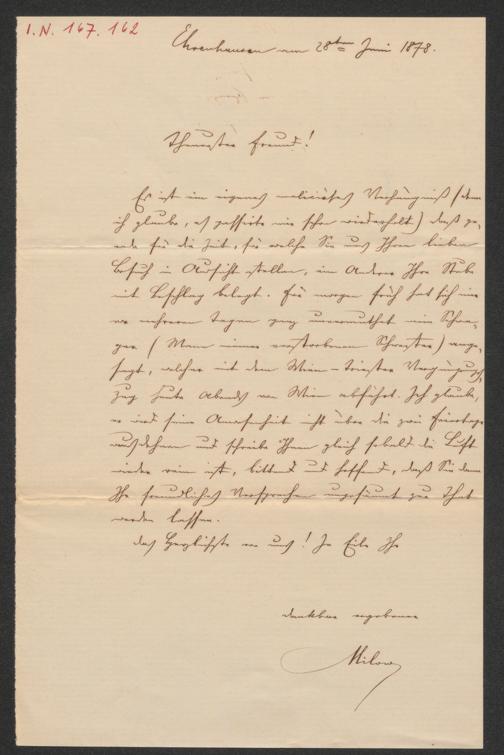 I.N. 167.162
Ehrenhausen am 28ten Juni 1878.
Theuerster Freund!
Es ist ein eigenes maliciöses Verhängniß (denn
ich glaube, es passirte mir schon wiederholt) daß ge-
rade für die Zeit, für welche Sie uns Ihren lieben
Besuch in Aussicht stellen, ein Anderer Ihre Stube
mit Beschlag belegt. Für morgen früh hat sich mir
vor mehreren Tagen ganz unvermuthet mein Schwa-
ger (Mann meiner verstorbenen Schwester) ange-
sagt, welcher mit dem Wien-Triester Vergnügungs
Zug heute Abends von Wien abfährt. Ich glaube,
er wird seine Anwesenheit nicht über die zwei Feiertage
ausdehnen und schreibe Ihnen gleich sobald die Luft
wieder rein ist, bittend und hoffend, daß Sie dann
Ihr freundliches Versprechen ungesäumt zur That
werden lassen.
Das Herzlichste von uns! In Eile Ihr
dankbar ergebener
Milow